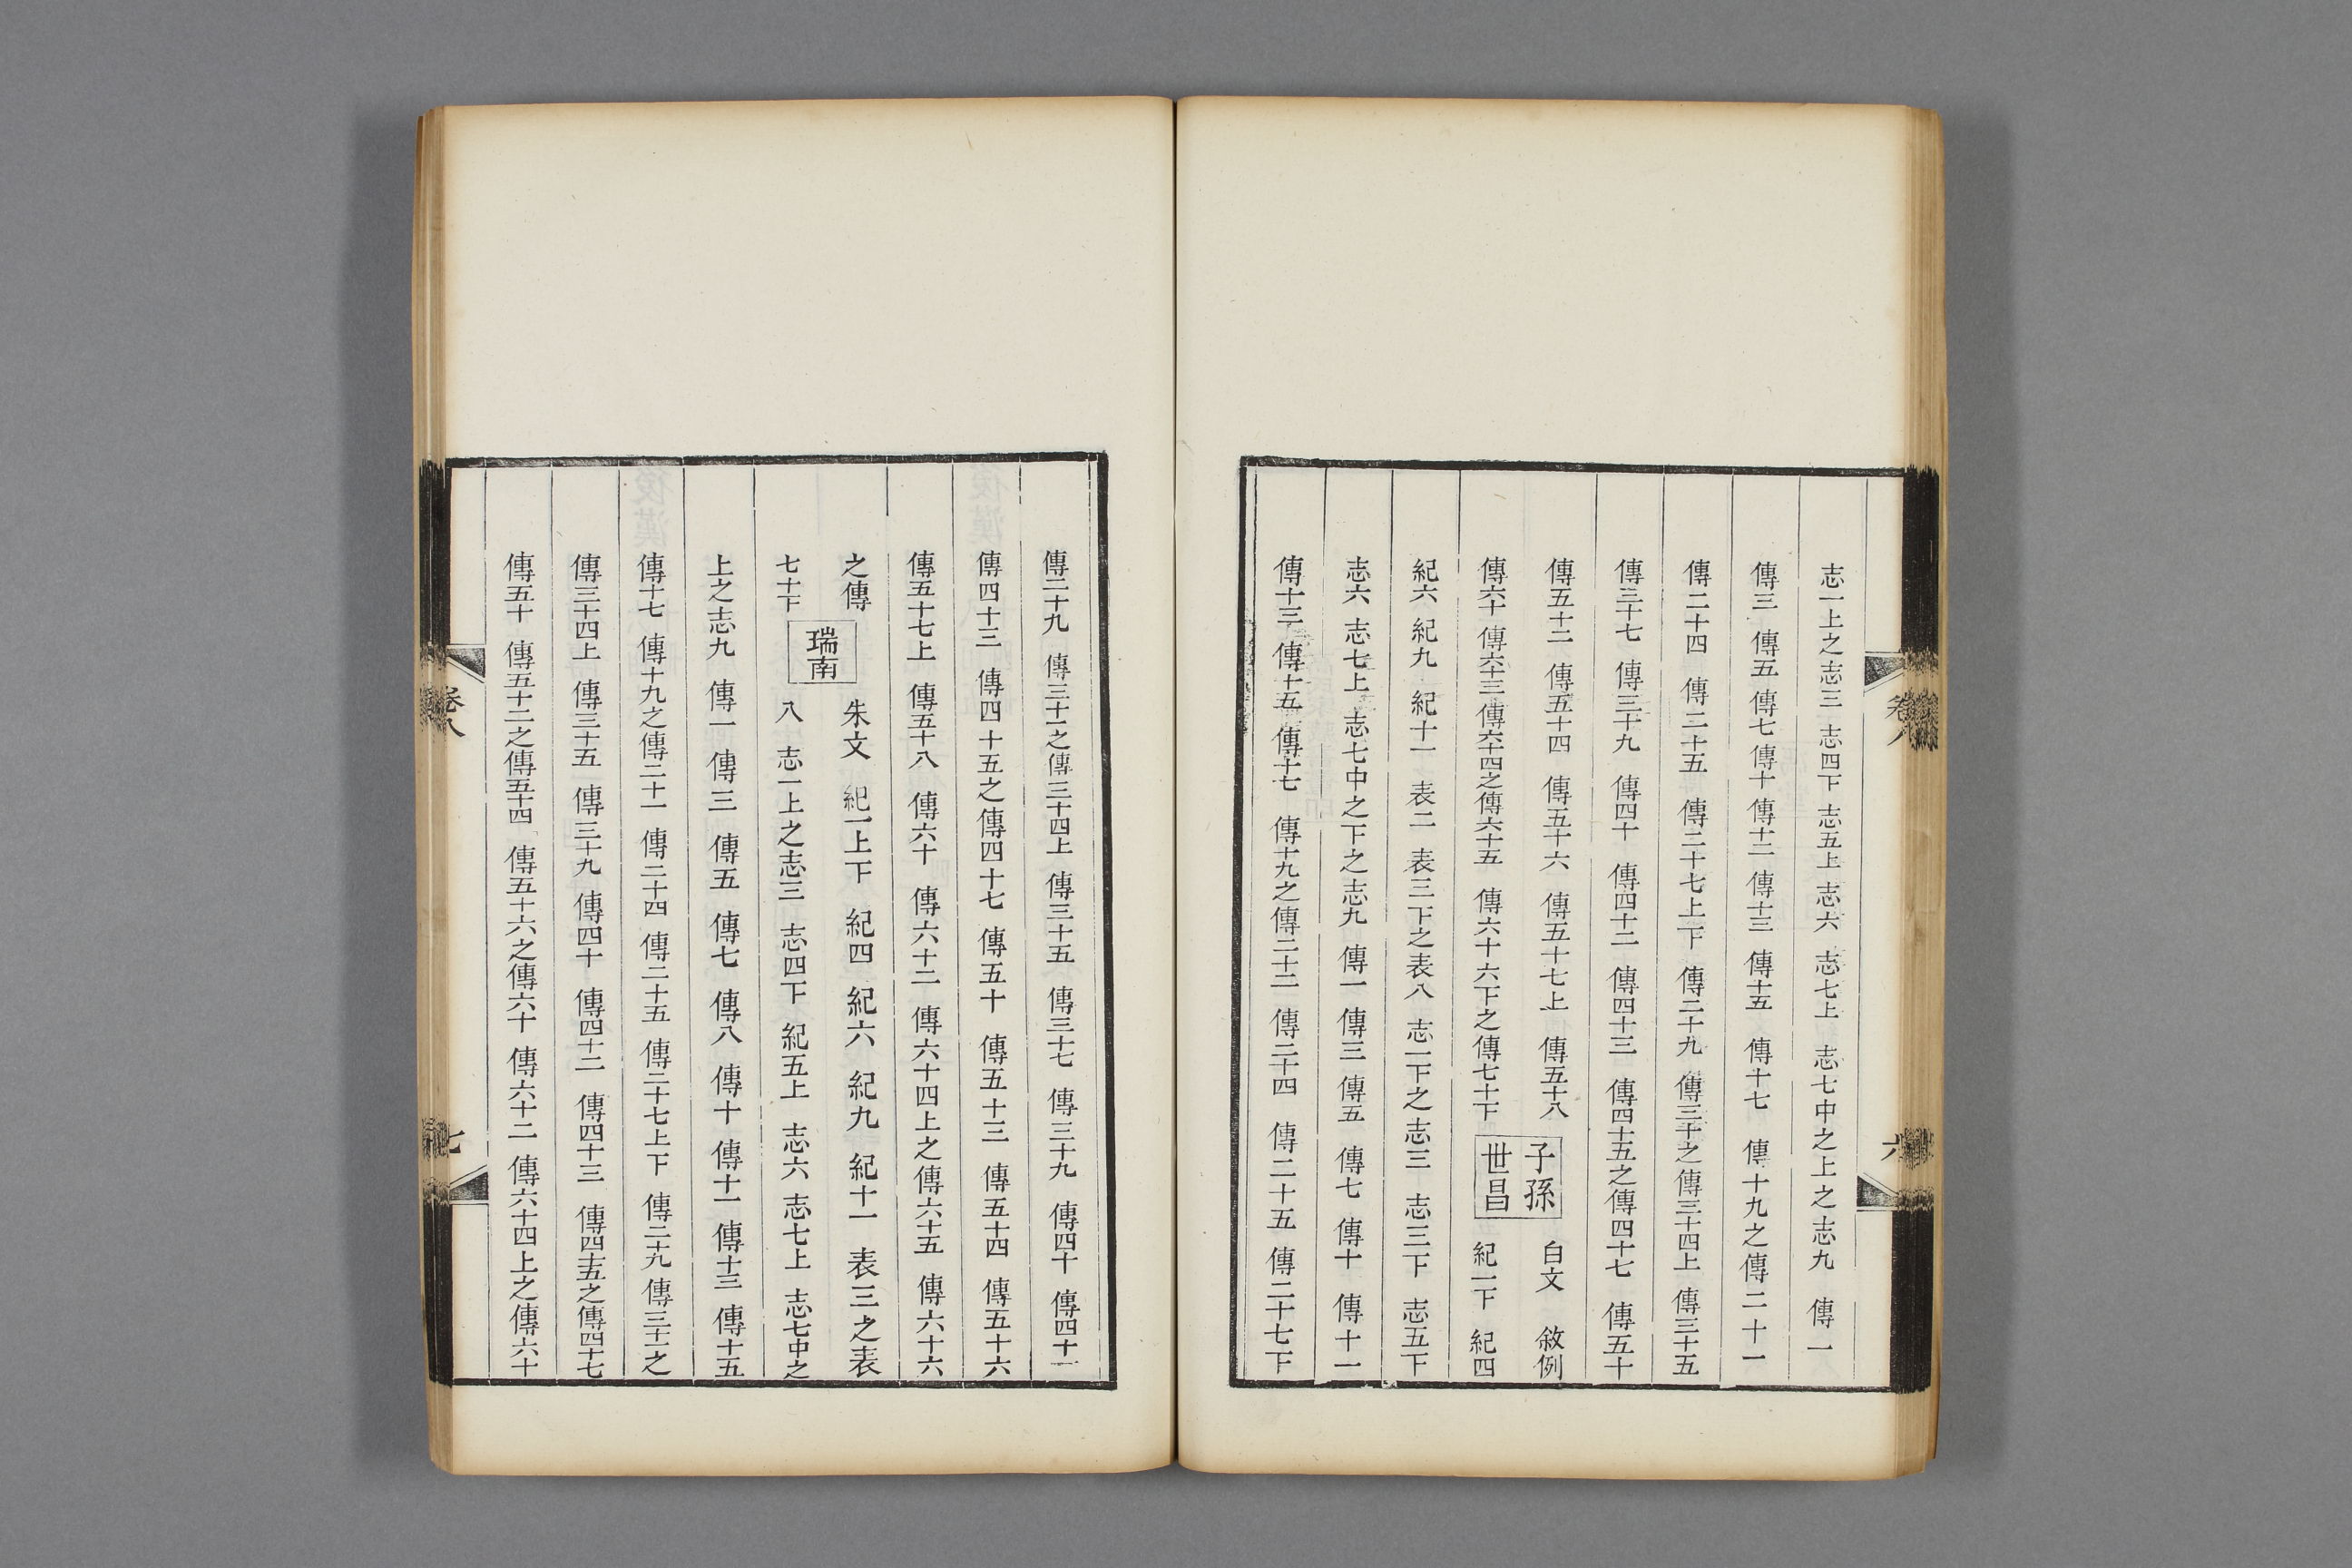 志一上之志三　志四下　志五上　志六　志七上　志七中之上之志九　傳一
傳三　傳五　傳七　傳十　傳十二　傳十三　傳十五　傳十七　傳十九之傳二十一
傳二十四　傳二十五　傳二十七上下　傳二十九　傳三十之傳三十四上　傳三十五
傳三十七　傳三十九　傳四十　傳四十二　傳四十三　傳四十五之傳四十七　傳五十
傳五十二　傳五十四　傳五十六　傳五十七上　傳五十八　子孫　白文　敘例
傳六十　傳六十三　傳六十四之傳六十五　傳六十六下之傳七十下　世昌　紀一下　紀四
紀六　紀九　紀十一　表二　表三下之表八　志一下之志三　志三下　志五下
志六　志七上　志七中之下之志九　傳一　傳三　傳五　傳七　傳十　傳十一
傳十三　傳十五　傳十七　傳十九之傳二十二　傳二十四　傳二十五　傳二十七下
卷八
六
傳二十九　傳三十一之傳三十四上　傳三十五　傳三十七　傳三十九　傳四十　傳四十一
傳四十三　傳四十五之傳四十七　傳五十　傳五十三　傳五十四　傳五十六
傳五十七上　傳五十八　傳六十　傳六十二　傳六十四上之傳六十五　傳六十六
之傳　瑞南　朱文　紀一上下　紀四　紀六　紀九　紀十一　表三之表
七十下　八　志一上之志三　志四下　紀五上　志六　志七上　志七中之
上之志九　傳一　傳三　傳五　傳七　傳八　傳十　傳十一　傳十三　傳十五
傳十七　傳十九之傳二十一　傳二十四　傳二十五　傳二十七上下　傳二十九　傳三十一之
傳三十四上　傳三十五　傳三十九　傳四十　傳四十二　傳四十三　傳四十五之傳四十七
傳五十　傳五十二之傳五十四　傳五十六之傳六十　傳六十二　傳六十四上之傳六十
卷八
七